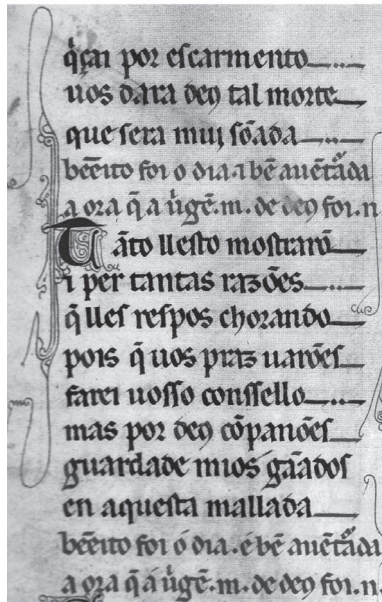 q̇çai por escarmento
uos dara deꝯ tal morte
que sera mui sõada
bẽeito foi o dia ⁊ bẽ auẽtᷓada
a ora q̃ a u̇gẽ .m. de deꝯ foi .n.
Tãto llesto mostrarõ
i per tantas razões
q̃ lles respos chorando
pois q̃ uos praz uarões
farei uosso conssello
mas por deꝯ cõpanões
guardade mios gãados
en aquesta mallada
bẽeito foi ó dia. é bẽ auẽtᷓada
a ora q̃ á u̇gẽ .m. de deꝯ foi .n.